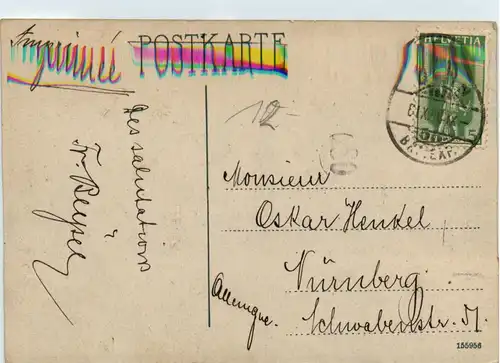 Imprimé
POSTKARTE
HELVETIA
12.-
Des salutations
Fr. Beyer
BR. EXP.
Monsieur
Oskar Henkel
Nürnberg
Allemagne.
Schwabenstr.
155956